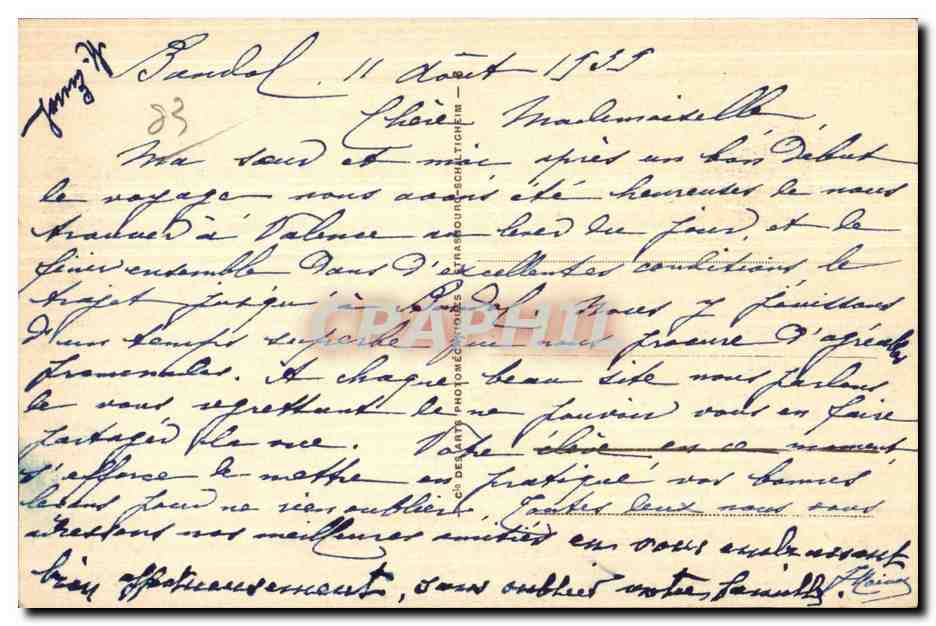 Bandol. 11 Août 1939
83
Chère Mademoiselle
Ma sœur et moi après un bon début
de voyage nous avons été heureuses de nous
trouver à Valence au lever du jour et de
finir ensemble dans d'excellentes conditions le
trajet jusqu'à Bandol. Nous y jouissons
d'un temps superbe qui nous procure d'agréables
promenades. A chaque beau site nous parlons
de vous regrettant de ne pouvoir vous en faire
partager la vue. Votre élève en ce moment
s'efforce de mettre en pratique vos bonnes
leçons pour ne rien oublier. Toutes deux nous vous
adressons nos meilleures amitiés en vous embrassant
bien affectueusement, sans oublier votre famille.
Cie DES ARTS PHOTOMÉCANIQUES STRASBOURG-SCHILTIGHEIM
CRAPHIL